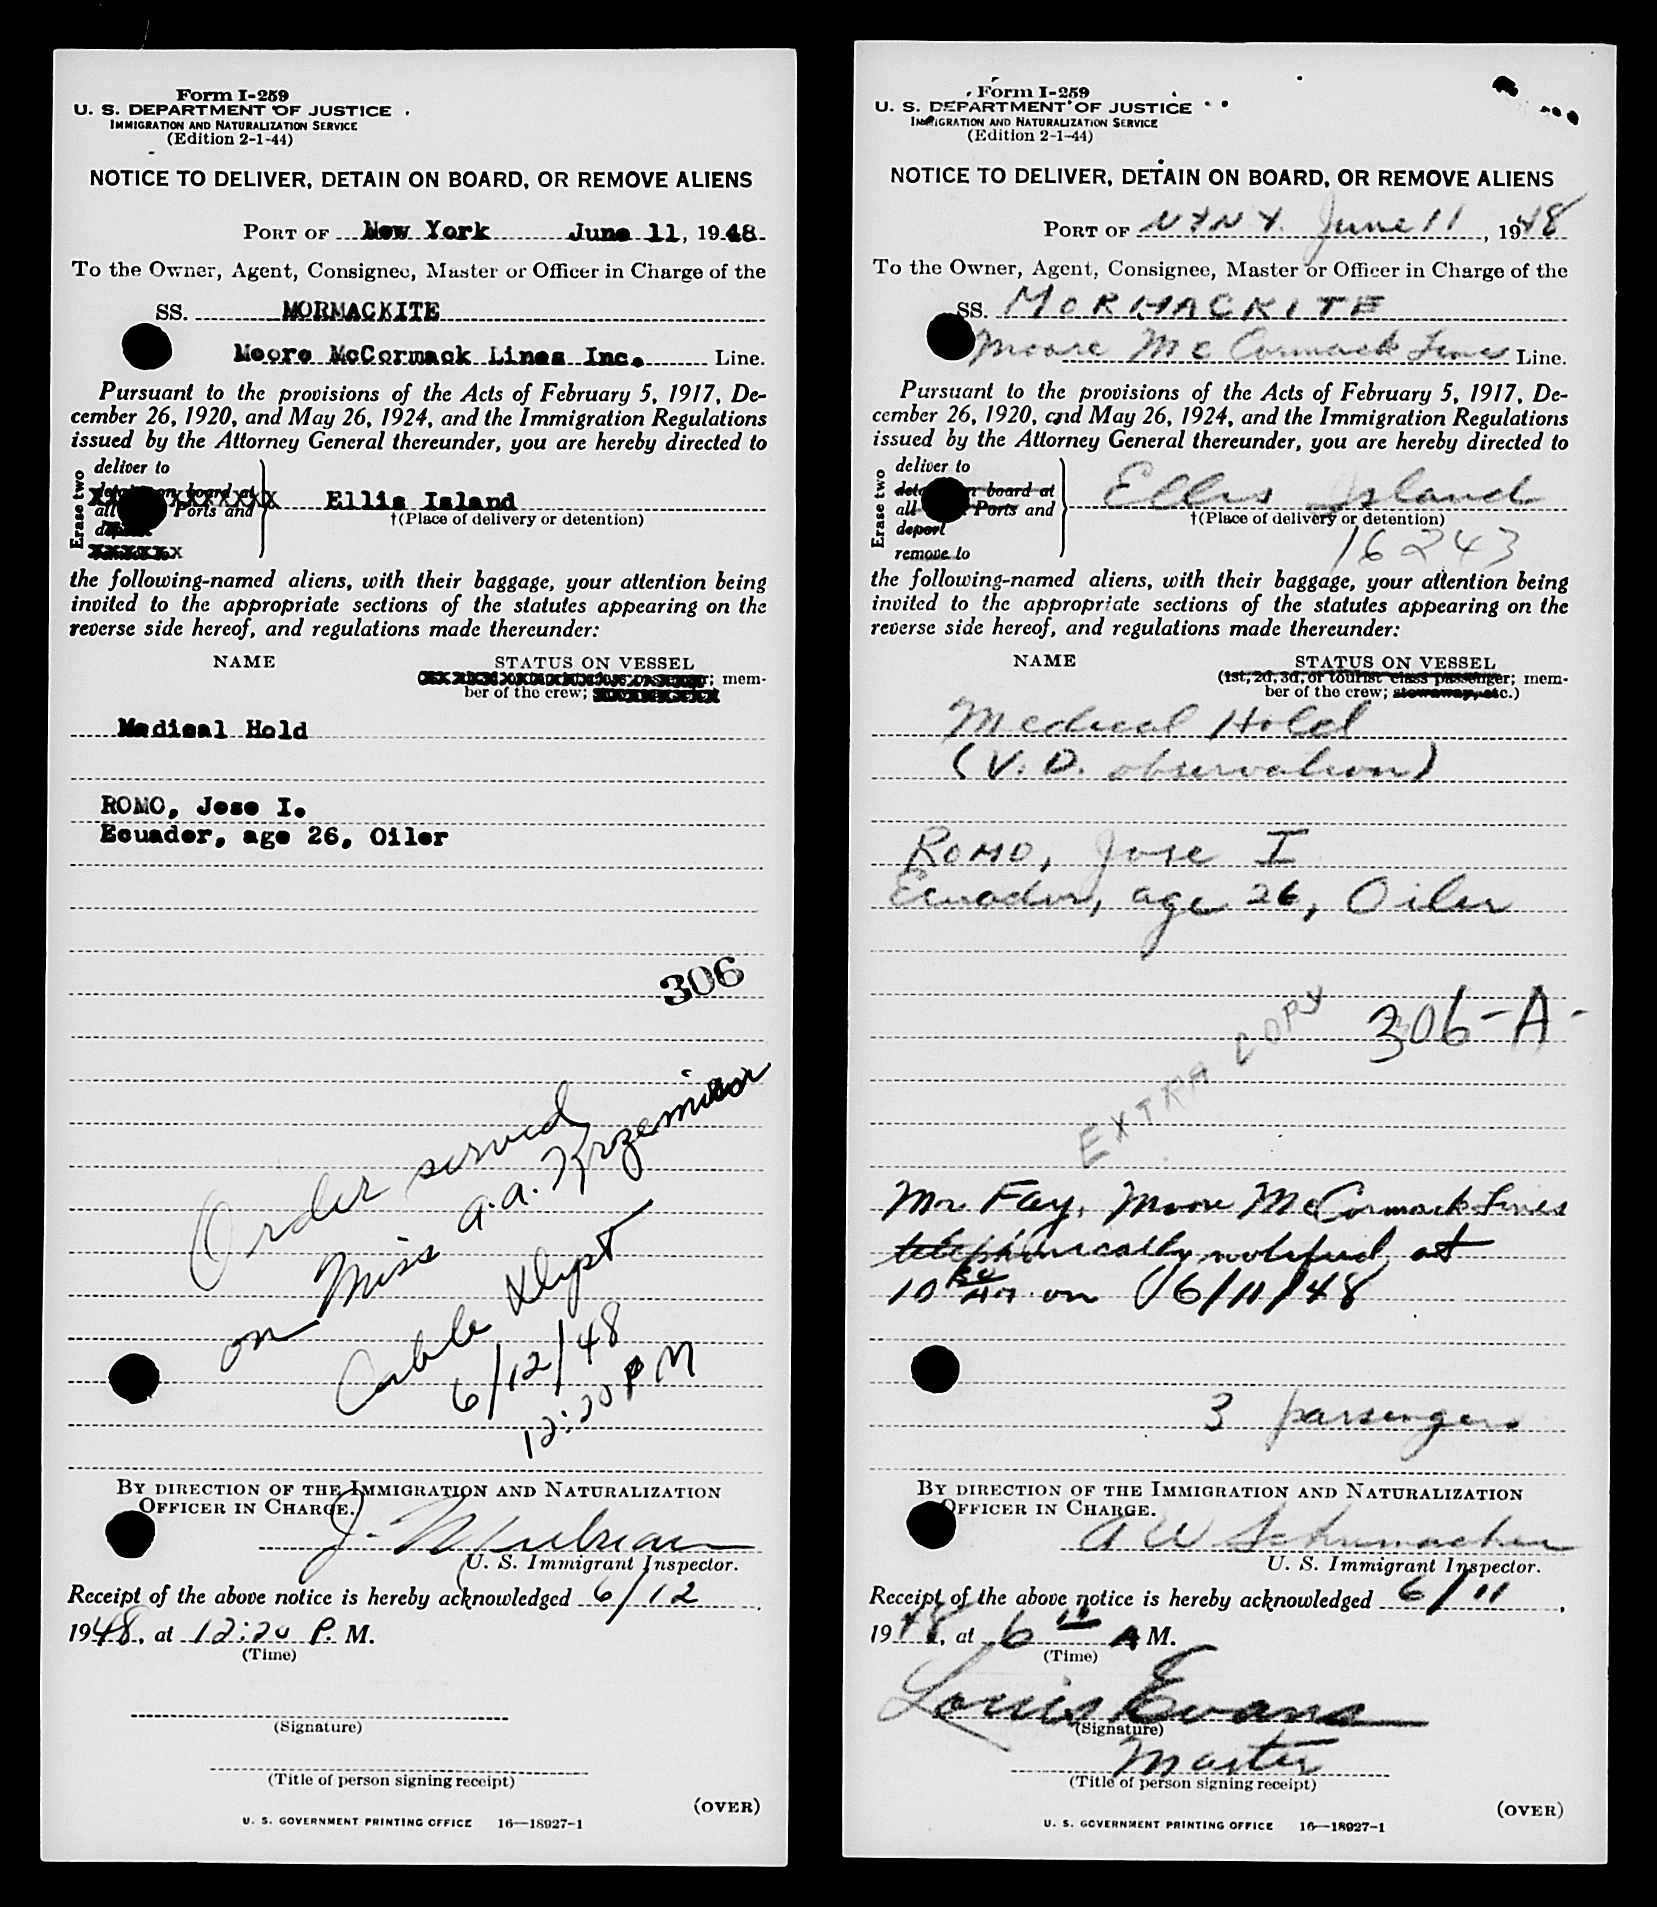 Form I-259
U. S. DEPARTMENT OF JUSTICE
IMMIGRATION AND NATURALIZATION SERVICE
(Edition 2-1-44)
NOTICE TO DELIVER, DETAIN ON BOARD, OR REMOVE ALIENS
PORT OF New York June 11, 1948
To the Owner, Agent, Consignee, Master or Officer in Charge of the
SS. MORMACKITE
Moore McCormack Lines Inc. Line.
Pursuant to the provisions of the Acts of February 5, 1917, De-
cember 26, 1920, and May 26, 1924, and the Immigration Regulations
issued by the Attorney General thereunder, you are hereby directed to
Erase two
deliver to
on board at
all Ports and
Ellis Island
†(Place of delivery or detention)
the following-named aliens, with their baggage, your attention being
invited to the appropriate sections of the statutes appearing on the
reverse side hereof, and regulations made thereunder:
NAME STATUS ON VESSEL
mem-
ber of the crew;
Medical Hold
ROMO, Jose I.
Ecuador, age 26, Oiler
306
Order served
on Miss A.A.
Cable Dept
6/12/48
12:20 PM
BY DIRECTION OF THE IMMIGRATION AND NATURALIZATION
OFFICER IN CHARGE.
J.
U. S. Immigrant Inspector.
Receipt of the above notice is hereby acknowledged 6/12,
1948, at 12:20 P. M.
(Time)
(Signature)
(Title of person signing receipt)
(OVER)
U. S. GOVERNMENT PRINTING OFFICE 16—18927-1
Form I-259
U. S. DEPARTMENT OF JUSTICE
IMMIGRATION AND NATURALIZATION SERVICE
(Edition 2-1-44)
NOTICE TO DELIVER, DETAIN ON BOARD, OR REMOVE ALIENS
PORT OF NYNY. June 11, 1948
To the Owner, Agent, Consignee, Master or Officer in Charge of the
SS. MORMACKITE
Moore McCormack Lines Line.
Pursuant to the provisions of the Acts of February 5, 1917, De-
cember 26, 1920, and May 26, 1924, and the Immigration Regulations
issued by the Attorney General thereunder, you are hereby directed to
Erase two
deliver to
on board at
all Ports and
deport
remove to
Ellis Island
†(Place of delivery or detention)
16243
the following-named aliens, with their baggage, your attention being
invited to the appropriate sections of the statutes appearing on the
reverse side hereof, and regulations made thereunder:
NAME STATUS ON VESSEL
(1st, 2d, 3d, or tourist class passenger; mem-
ber of the crew; stowaway, etc.)
Medical Hold
(V.D. observation)
ROMO, Jose I
Ecuador, age 26, Oiler
306-A-
EXTRA COPY
Mr. Fay, Moore McCormack Lines
telephonically notified at
10 30 AM on 6/11/48
3 passengers
BY DIRECTION OF THE IMMIGRATION AND NATURALIZATION
OFFICER IN CHARGE.
A W Schumacher
U. S. Immigrant Inspector.
Receipt of the above notice is hereby acknowledged 6/11,
1948, at 6 10 A M.
(Time)
Louis Evans
(Signature)
Master
(Title of person signing receipt)
(OVER)
U. S. GOVERNMENT PRINTING OFFICE 16—18927-1